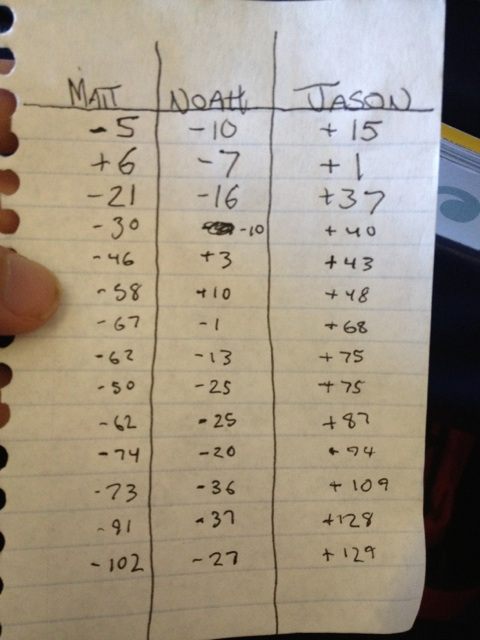 MATT NOAH JASON
-5 -10 +15
+6 -7 +1
-21 -16 +37
-30 -10 +40
-46 +3 +43
-58 +10 +48
-67 -1 +68
-62 -13 +75
-50 -25 +75
-62 -25 +87
-74 -20 +94
-73 -36 +109
-91 -37 +128
-102 -27 +129